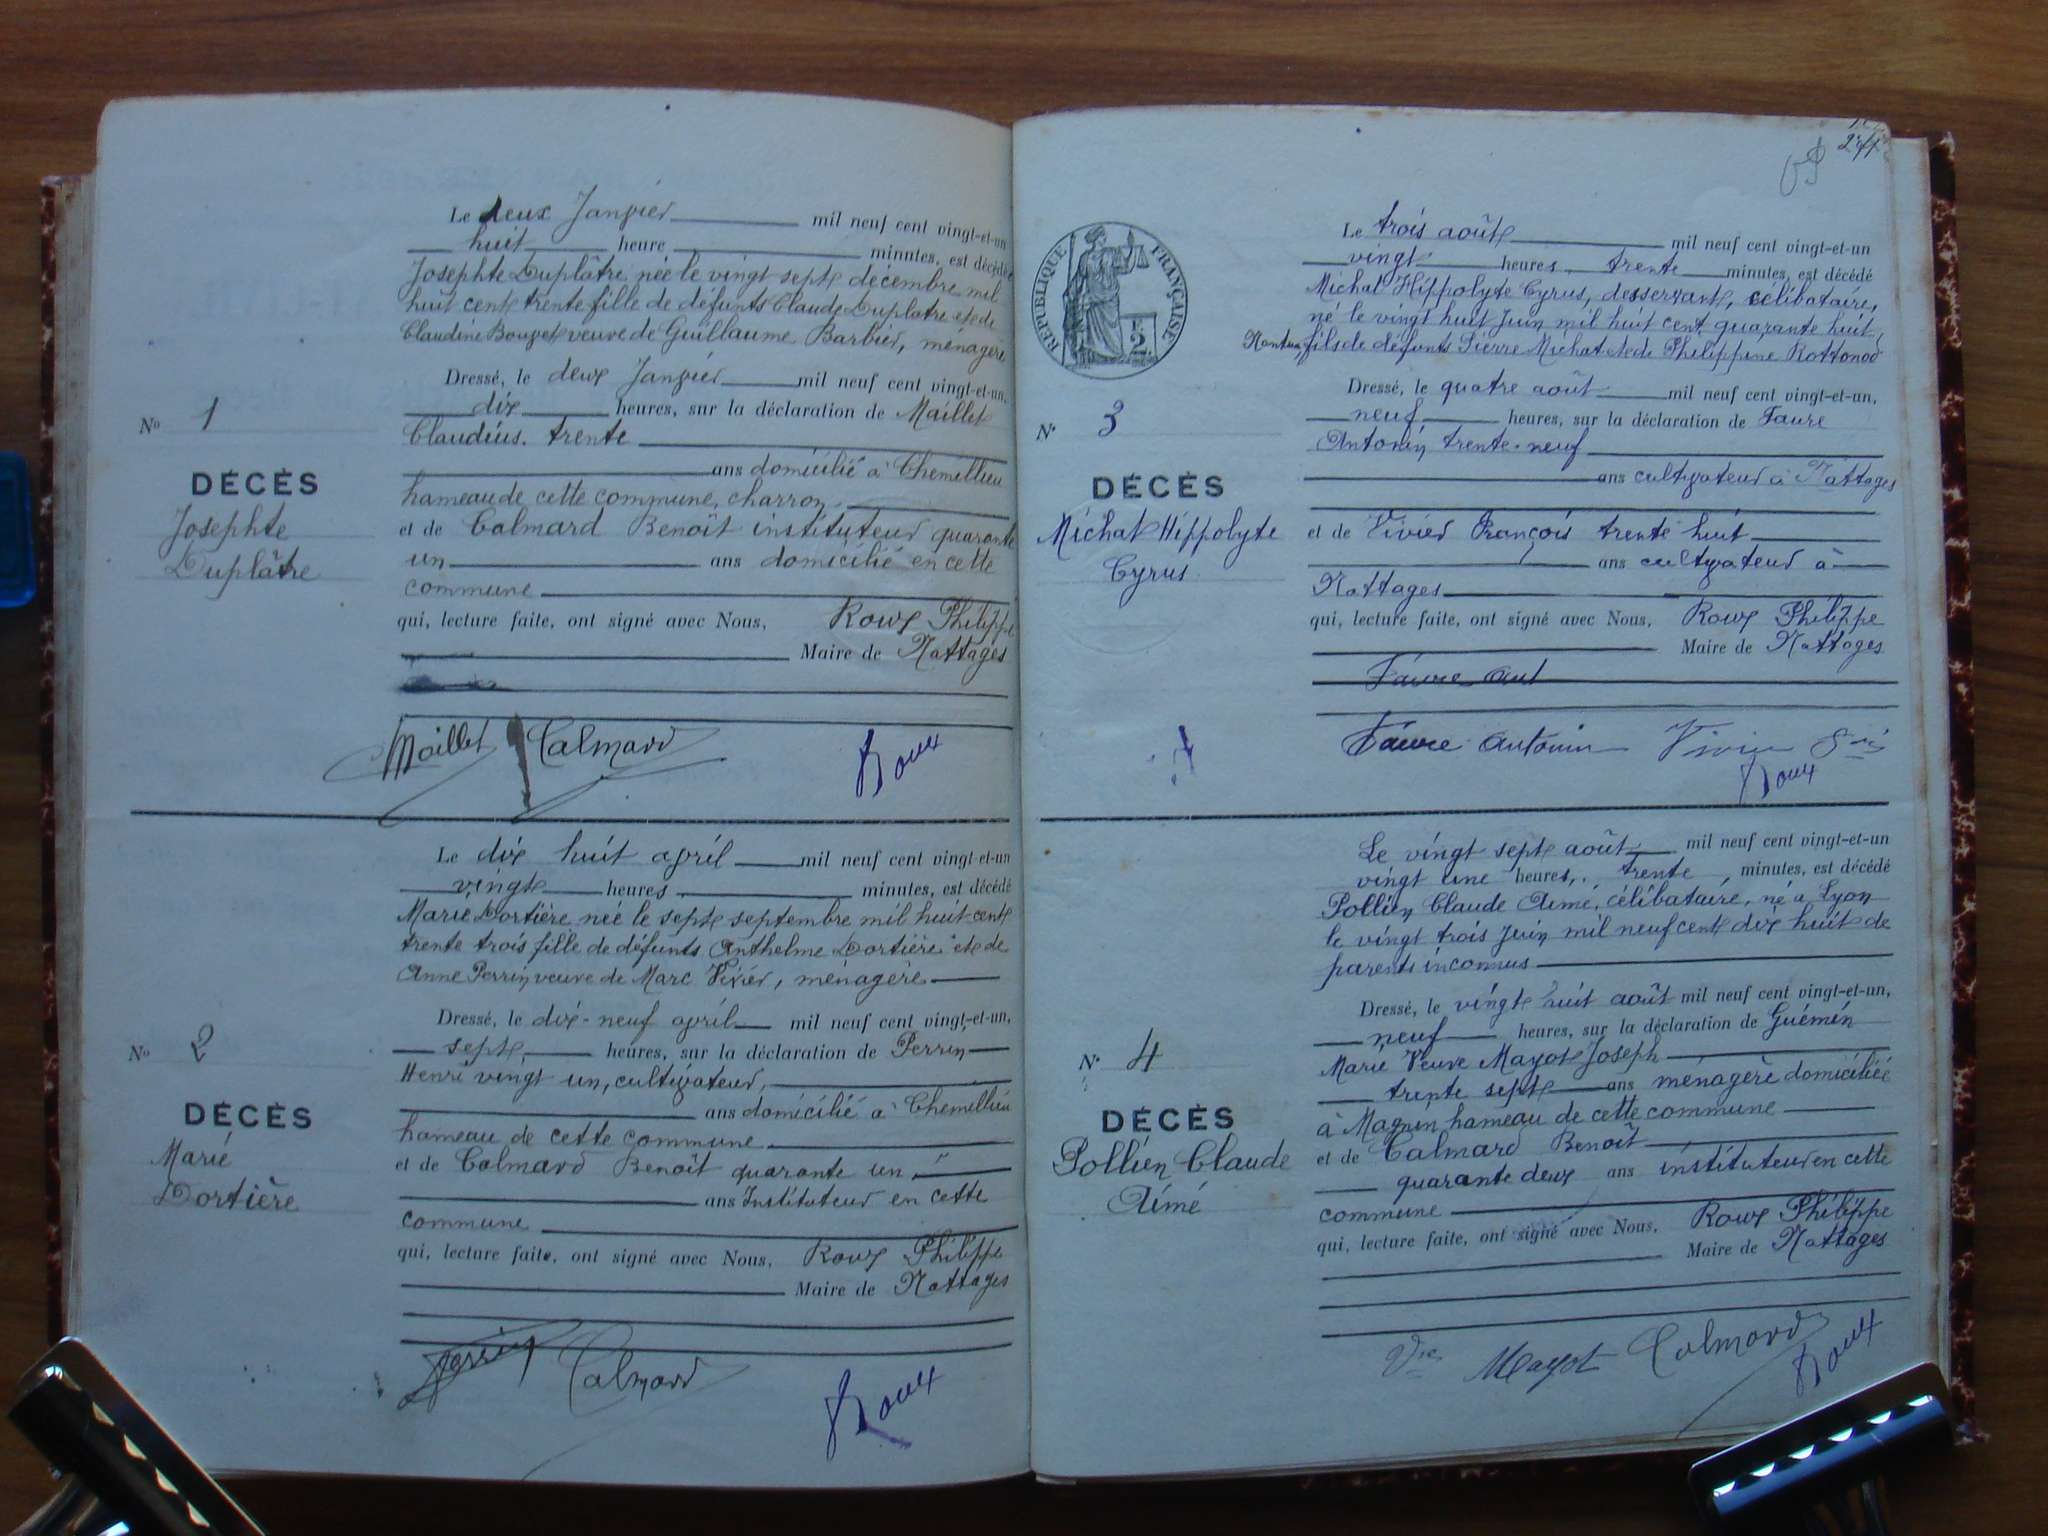 Le deux Janvier mil neuf cent vingt-et-un
huit heure minutes, est décédée
Josephte Duplâtre née le vingt sept décembre mil
huit cent trente fille de défunts Claude Duplatre et de
Claudine Bouvet veuve de Guillaume Barbier, ménagère
Dressé, le deux Janvier mil neuf cent vingt-et-un,
dix heures, sur la déclaration de Maillet
Claudius. trente
ans domicilié à Chemillieu
hameau de cette commune, charron
et de Calmard Benoît instituteur quarante
un ans domicilié en cette
commune
qui, lecture faite, ont signé avec Nous, Roux Philippe
Maire de Nattages
No 1
DÉCÈS
Josephte
Duplâtre
Maillet Calmard Roux
Le dix huit avril mil neuf cent vingt-et-un
vingt heures minutes, est décédé
Marie Dortière née le sept septembre mil huit cent
trente trois fille de défunts Anthelme Dortière et de
Anne Perrin veuve de Marc Vivier, ménagère
Dressé, le dix-neuf avril mil neuf cent vingt-et-un,
sept heures, sur la déclaration de Perrin
Henri vingt un, cultivateur,
ans domicilié à Chemillieu
hameau de cette commune
et de Calmard Benoît quarante un
ans Instituteur en cette
commune
qui, lecture faite, ont signé avec Nous, Roux Philippe
Maire de Nattages
No 2
DÉCÈS
Marie
Dortière
Perrin Calmard Roux
RÉPUBLIQUE FRANÇAISE
2
Le trois août mil neuf cent vingt-et-un
vingt heures trente minutes, est décédé
Michat Hippolyte Cyrus, desservant, célibataire,
né le vingt huit Juin mil huit cent quarante huit,
Nantua, fils de défunts Pierre Michat et de Philippine Rottonod
Dressé, le quatre août mil neuf cent vingt-et-un,
neuf heures, sur la déclaration de Faure
Antonin trente-neuf
ans cultivateur à Nattages
et de Vivier François trente huit
ans cultivateur à
Nattages
qui, lecture faite, ont signé avec Nous, Roux Philippe
Maire de Nattages
N° 3
DÉCÈS
Michat Hippolyte
Cyrus
Faure Ant
Faure Antonin Vivier
Roux
Le vingt sept août mil neuf cent vingt-et-un
vingt une heures, trente, minutes, est décédé
Pollien Claude Aimé, célibataire, né à Lyon
le vingt trois Juin mil neuf cent dix huit de
parents inconnus
Dressé, le vingt huit août mil neuf cent vingt-et-un,
neuf heures, sur la déclaration de Guémin
Marie Veuve Mayot Joseph
trente sept ans ménagère domiciliée
à Magnin hameau de cette commune
et de Calmard Benoît
quarante deux ans instituteur en cette
commune
qui, lecture faite, ont signé avec Nous, Roux Philippe
Maire de Nattages
N° 4
DÉCÈS
Pollien Claude
Aimé
Vve Mayot Calmard Roux